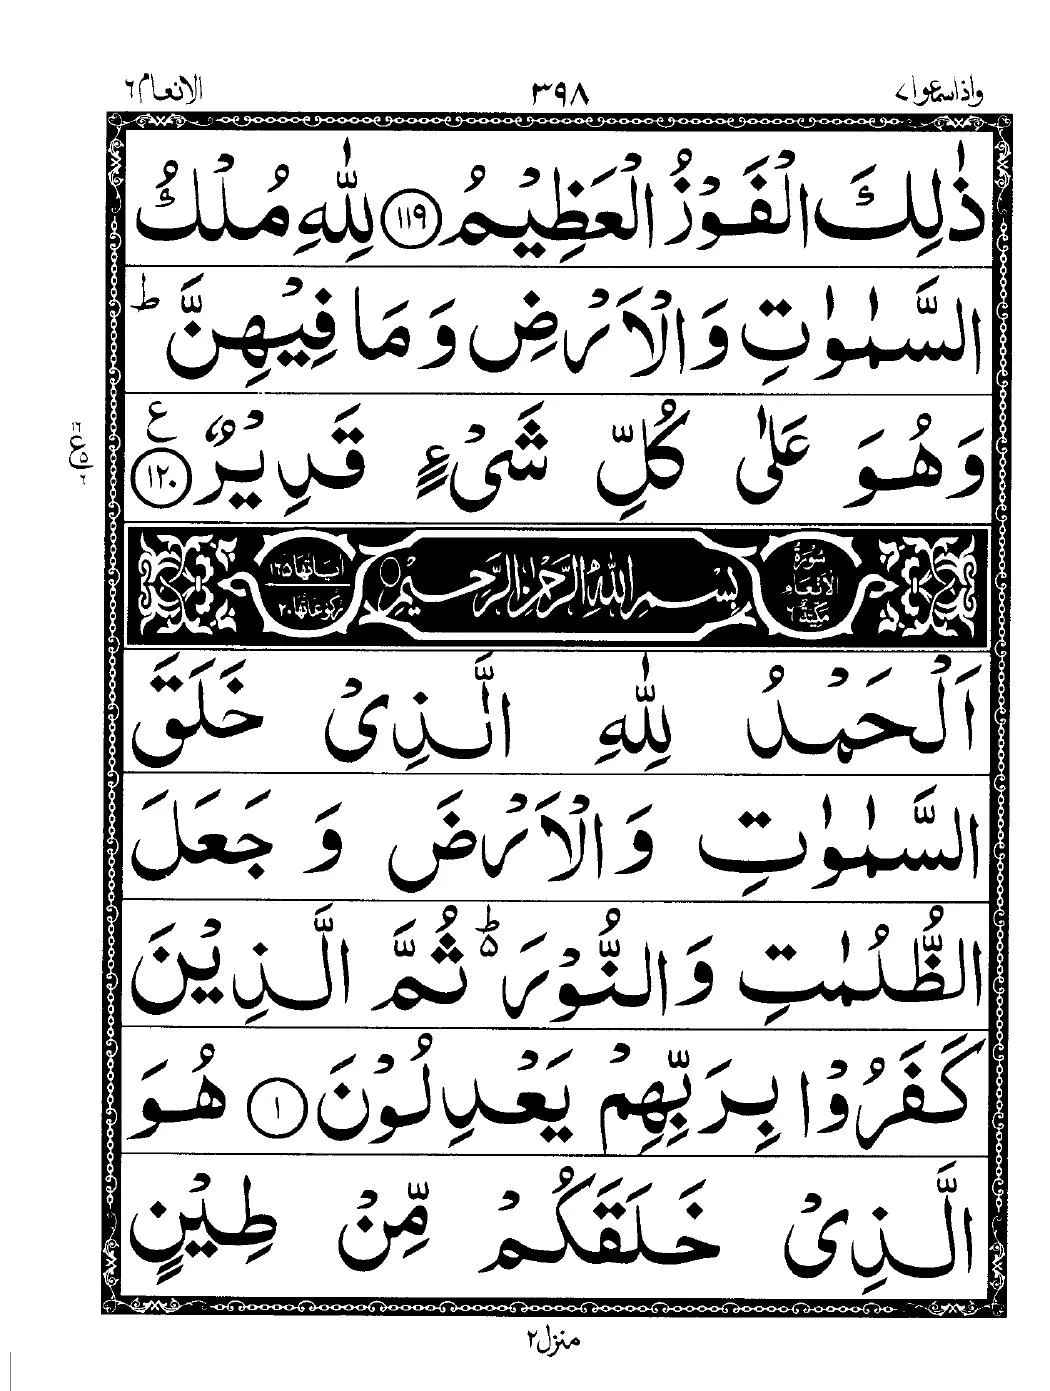 الانعام ٦
٣٩٨
واذاسمعوا ٧
ذٰلِكَ الْفَوْزُ الْعَظِيْمُ ١١٩ لِلّٰهِ مُلْكُ
السَّمٰوٰتِ وَالْاَرْضِ وَمَا فِيْهِنَّ ؕ
وَهُوَ عَلٰى كُلِّ شَىْءٍ قَدِيْرٌ ١٢٠ ع
سُوْرَةُ الْاَنْعَامِ مَكِّيَّةٌ ٦
بِسْمِ اللّٰهِ الرَّحْمٰنِ الرَّحِيْمِ
اٰيَاتُهَا ١٦٥
رُكُوْعَاتُهَا ٢٠
اَلْحَمْدُ لِلّٰهِ الَّذِىْ خَلَقَ
السَّمٰوٰتِ وَالْاَرْضَ وَ جَعَلَ
الظُّلُمٰتِ وَالنُّوْرَ ؕ ثُمَّ الَّذِيْنَ
كَفَرُوْا بِرَبِّهِمْ يَعْدِلُوْنَ ١ هُوَ
الَّذِىْ خَلَقَكُمْ مِّنْ طِيْنٍ
منزل ٢